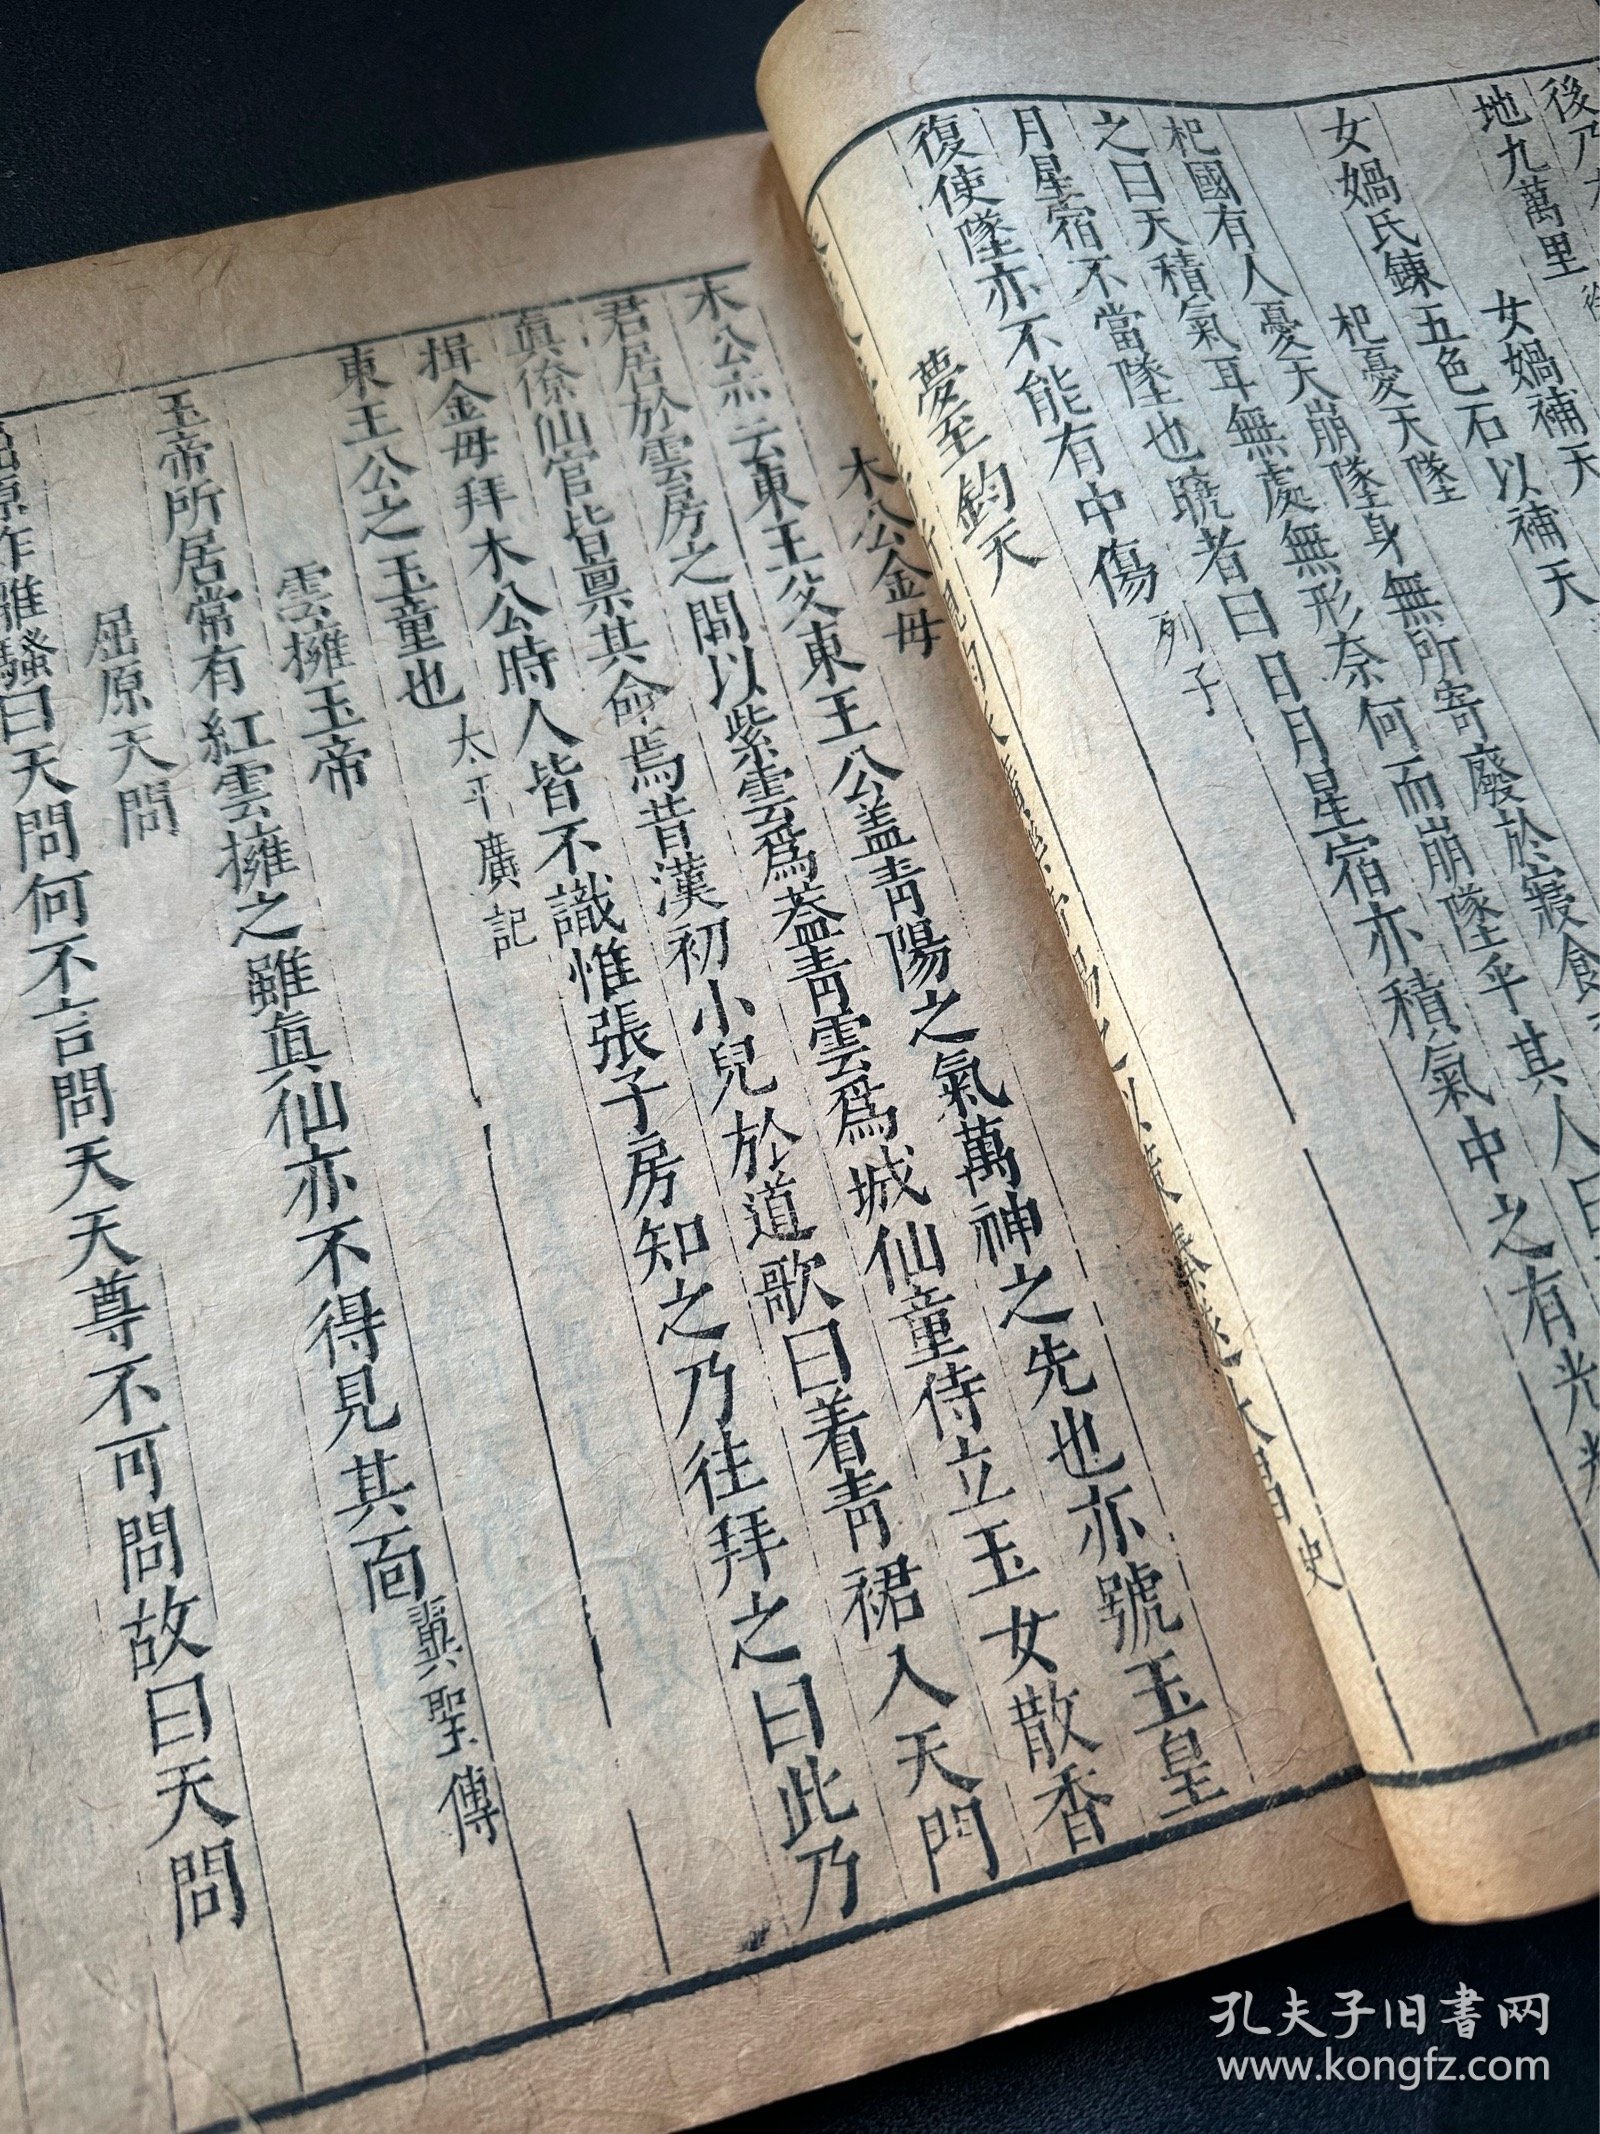 後乃
地九萬里
女媧補天
女媧氏鍊五色石以補天
杞憂天墜
杞國有人憂天崩墜身無所寄廢於寢食
之曰天積氣耳無處無形奈何而崩墜乎其人曰
月星宿不當墜也曉者曰日月星宿亦積氣中之有光
復使墜亦不能有中傷 列子
夢至鈞天
木公金母
木公亦云東王父東王公蓋青陽之氣萬神之先也亦號玉皇
君居於雲房之間以紫雲爲葢青雲爲城仙童侍立玉女散香
眞僚仙官皆稟其命焉昔漢初小兒於道歌曰着青裙入天門
揖金母拜木公時人皆不識惟張子房知之乃往拜之曰此乃
東王公之玉童也 太平廣記
雲擁玉帝
玉帝所居常有紅雲擁之雖眞仙亦不得見其面 翼聖傳
屈原天問
屈原作離騷曰天問何不言問天天尊不可問故曰天問
孔夫子旧书网
www.kongfz.com